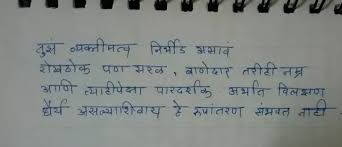 तुझं व्यक्तीमत्व निर्भीड असावं
रोखठोक पण सरळ, बाणेदार तरीही नम्र
आणि त्याहीपेक्षा पारदर्शक अर्थात विलक्षण
धैर्य असल्याशिवाय हे रुपांतरण संभवत नाही